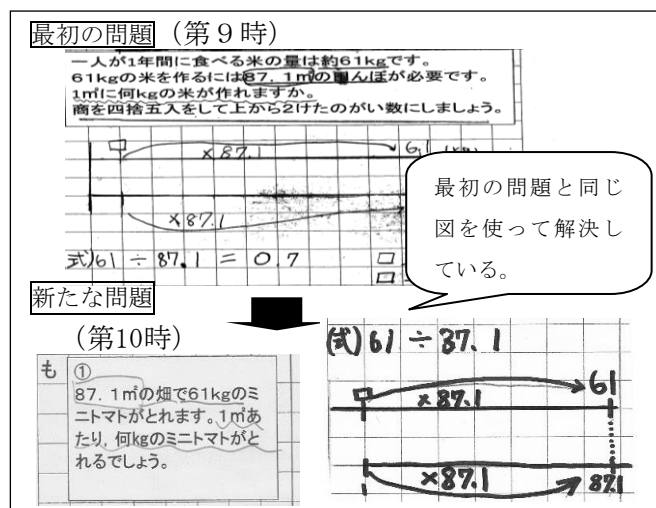 最初の問題（第９時）
一人が1年間に食べる米の量は約61kgです。
61kgの米を作るには87.1㎡の田んぼが必要です。
1㎡に何kgの米が作れますか。
商を四捨五入をして上から2けたのがい数にしましょう。
□
×87.1
61
×87.1
式)61÷87.1＝0.7
□
□
最初の問題と同じ
図を使って解決し
ている。
新たな問題
（第10時）
も
①
87.1㎡の畑で61kgのミ
ニトマトがとれます。1㎡あ
たり、何kgのミニトマトがと
れるでしょう。
(式)61÷87.1
□
×87.1
61
×87.1
87.1